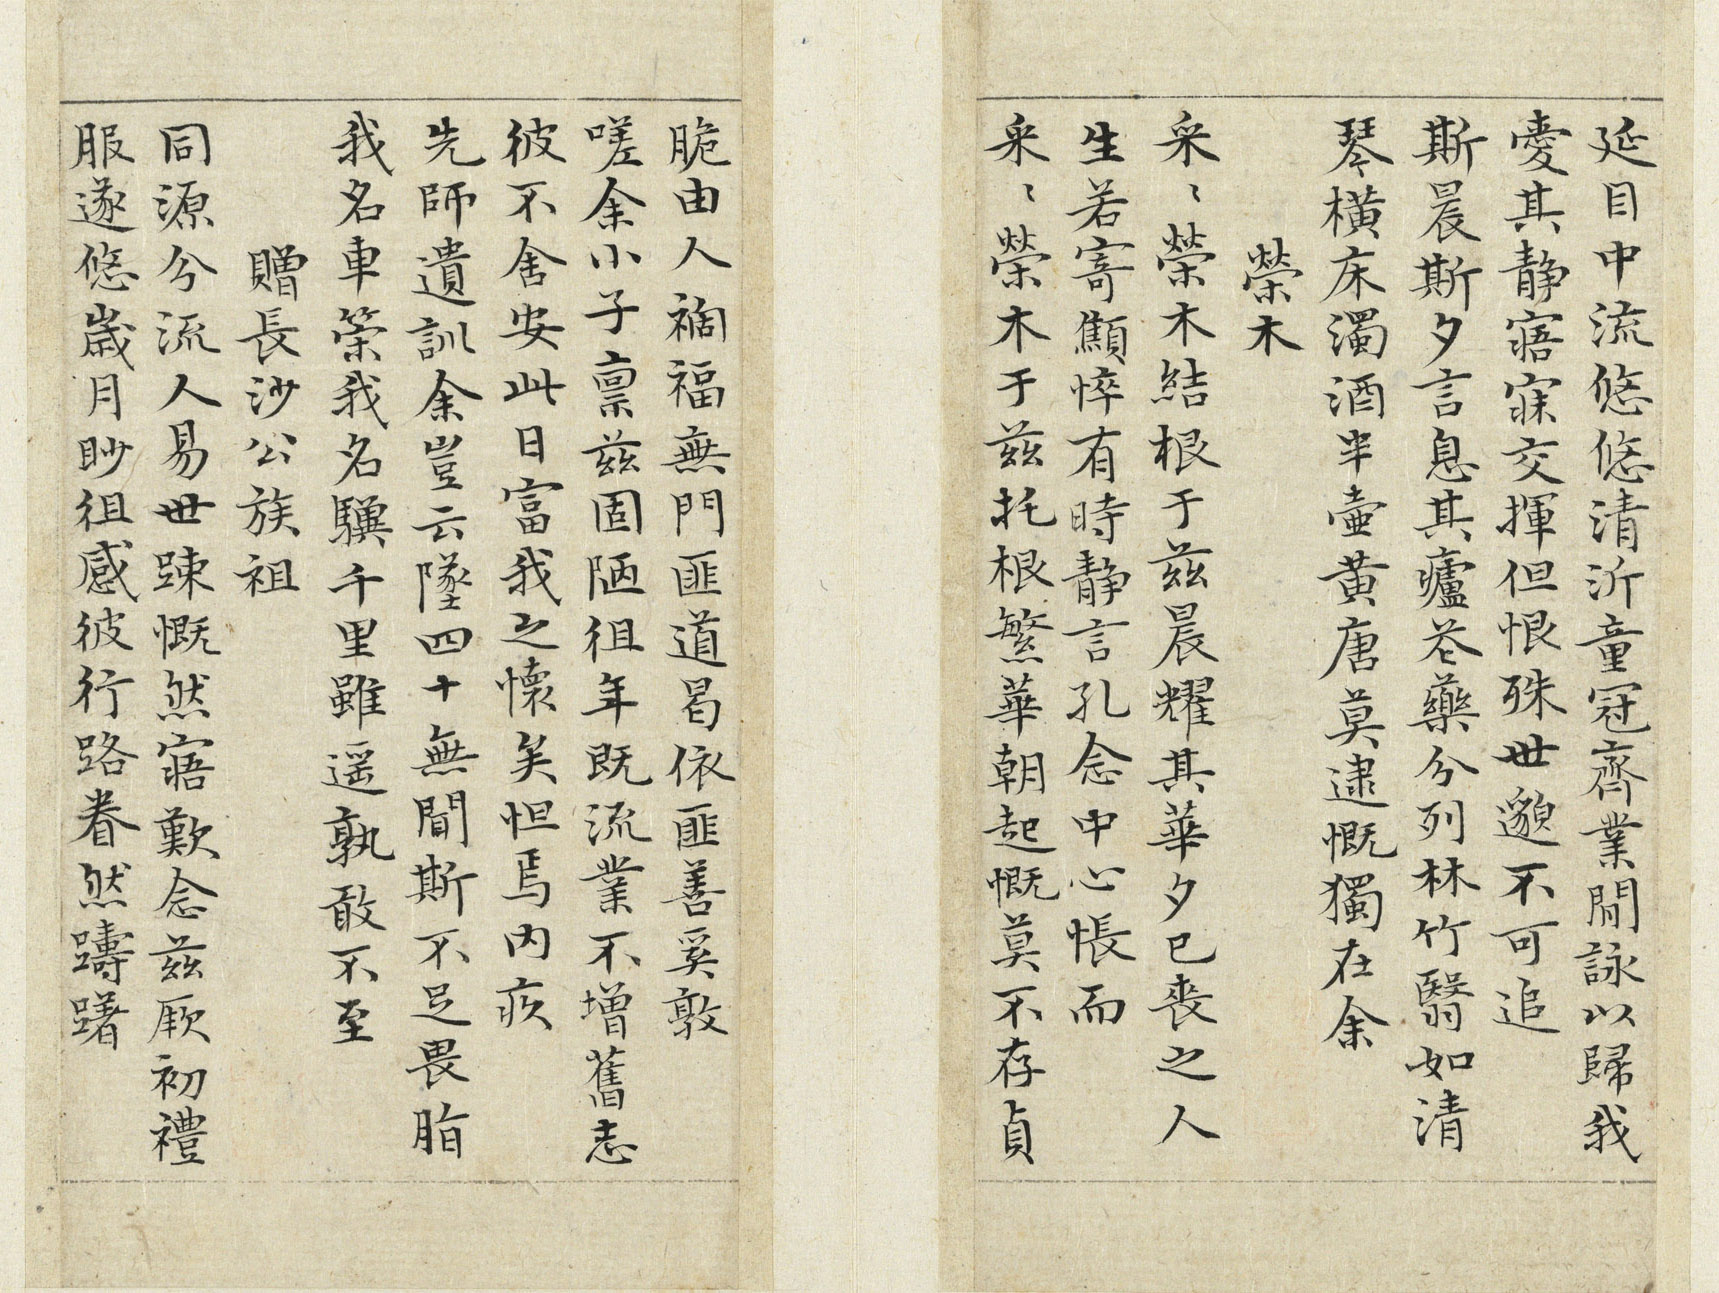 延目中流悠悠清沂童冠齊業閒詠以歸我
愛其静寤寐交揮但恨殊世邈不可追
斯晨斯夕言息其廬花藥分列林竹翳如清
琴橫床濁酒半壺黃唐莫逮慨獨在余
榮木
采〻榮木結根于兹晨耀其華夕已喪之人
生若寄顦悴有時静言孔念中心悵而
采〻榮木于兹托根繁華朝起慨莫不存貞
脆由人禍福無門匪道曷依匪善奚敦
嗟余小子禀兹固陋徂年既流業不增舊志
彼不舍安此日富我之懷矣怛焉内疚
先師遺訓余豈云墜四十無聞斯不足畏脂
我名車策我名驥千里雖遥孰敢不至
贈長沙公族祖
同源分流人易世踈慨然寤歎念兹厥初禮
服遂悠歲月眇徂感彼行路眷然躊躇